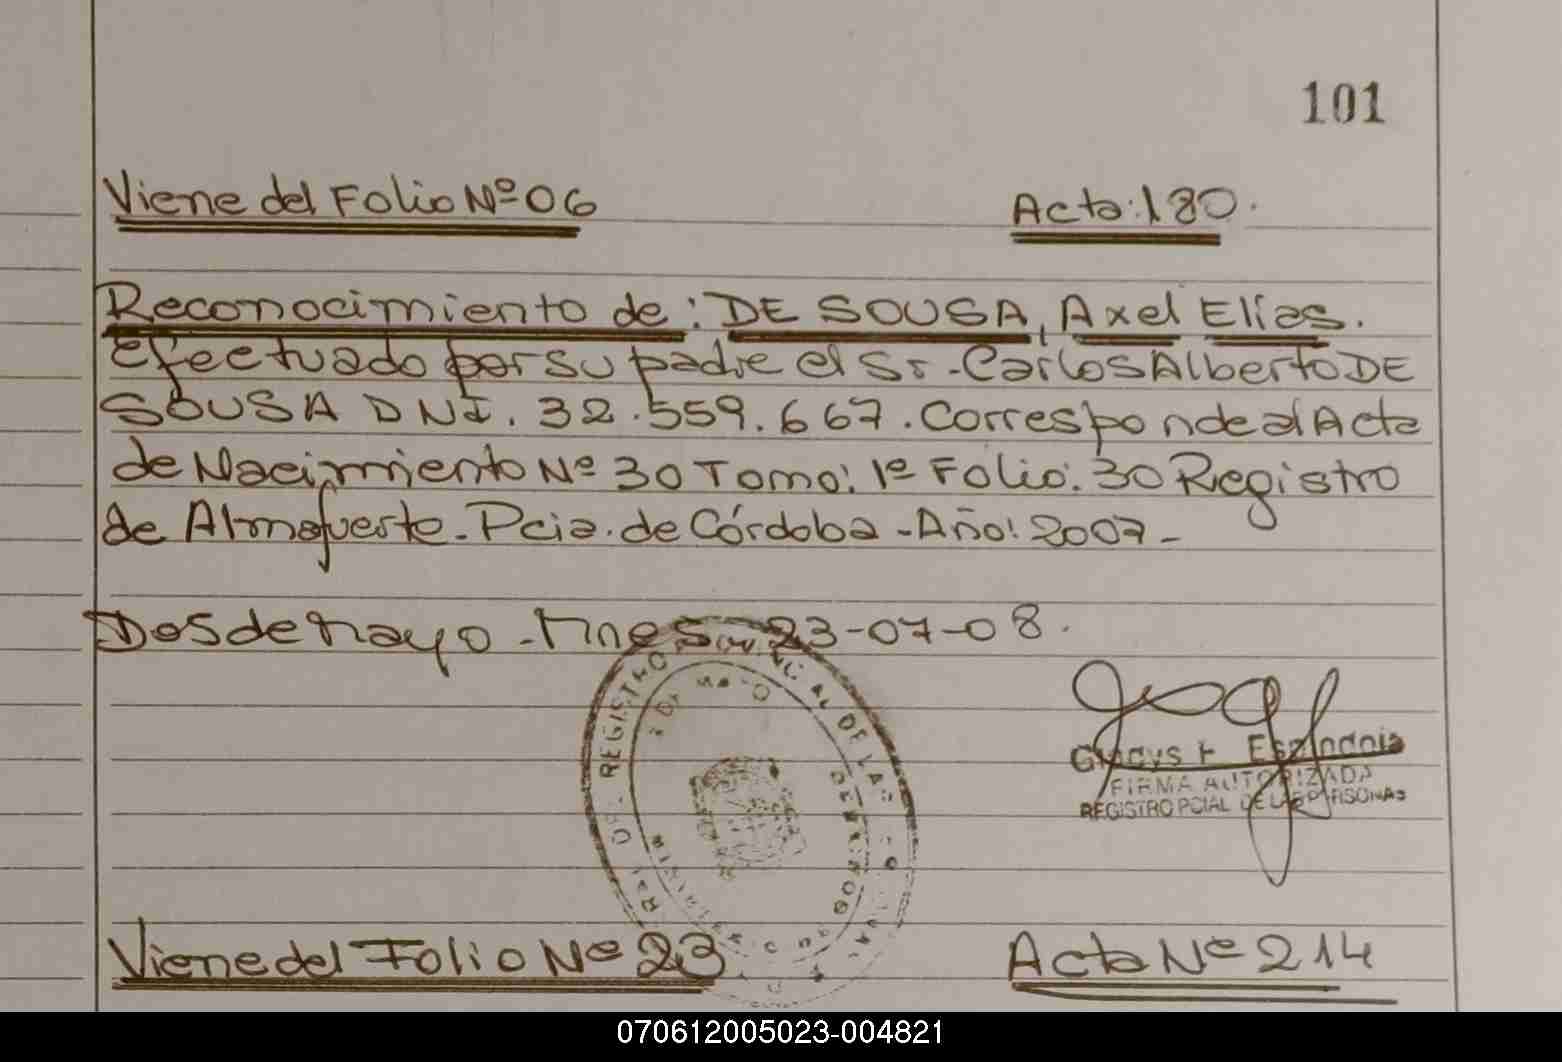 101
Viene del Folio Nº 06 Acta: 180.
Reconocimiento de: DE SOUSA, Axel Elías.
Efectuado por su padre el Sr. Carlos Alberto DE
SOUSA DNI. 32.559.667. Corresponde al Acta
de Nacimiento Nº 30 Tomo: 1º Folio: 30 Registro
de Almafuerte - Pcia. de Córdoba - Año: 2007 -
Dos de Mayo - Mnes. 23-07-08.
REGISTRO
DE MAYO
FIRMA AUTORIZADA
REGISTRO PCIAL DE LAS PERSONAS
Viene del Folio Nº 23 Acta Nº 214
070612005023-004821